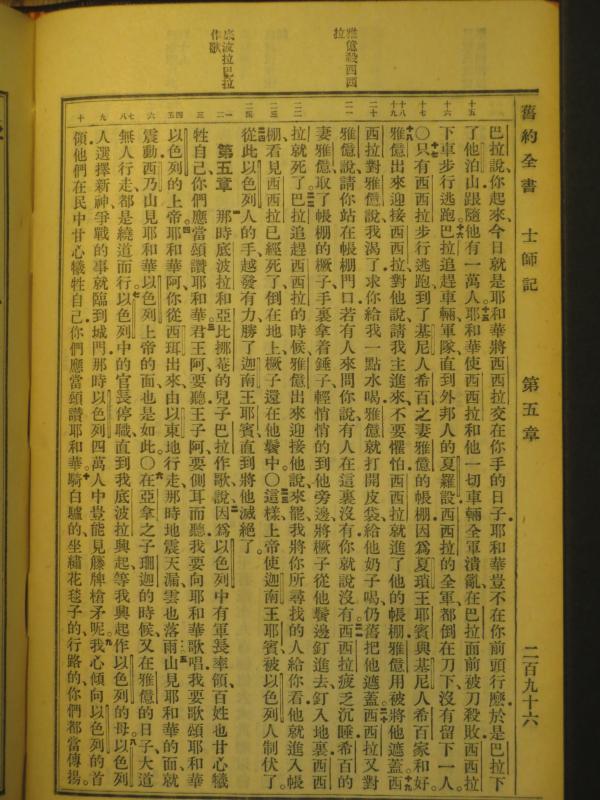 舊約全書 士師記 第五章 二百九十六
雅億殺西西拉
底波拉巴拉作歌
十五
十六
十七
十八 十九
二十
二一
二二
二三
二四
一二
三
四五
六
七八
九
十
巴拉說、你起來、今日就是耶和華將西西拉交在你手的日子、耶和華豈不在你前頭行麽、於是巴拉下
了他泊山、跟隨他有一萬人。耶和華使西西拉和他一切車輛全軍潰亂、在巴拉面前被刀殺敗、西西拉
下車步行逃跑。巴拉追趕車輛、軍隊、直到外邦人的夏羅設、西西拉的全軍、都倒在刀下、沒有留下一人。
〇只有西西拉步行逃跑、到了基尼人希百之妻雅億的帳棚、因爲夏瑣王耶賓與基尼人希百家和好。
雅億出來迎接西西拉、對他說、請我主進來、不要懼怕、西西拉就進了他的帳棚、雅億用被將他遮蓋。西
西拉對雅億說、我渴了、求你給我一點水喝、雅億就打開皮袋、給他奶子喝、仍舊把他遮蓋。西西拉又對
雅億說、請你站在帳棚門口、若有人來問你說、有人在這裏沒有、你就說、沒有。西西拉疲乏沉睡、希百的
妻雅億、取了帳棚的橛子、手裏拿着錘子、輕悄悄的到他旁邊、將橛子從他鬢邊釘進去、釘入地裏、西西
拉就死了。巴拉追趕西西拉的時候、雅億出來迎接他說、來罷、我將你所尋找的人給你看、他就進入帳
棚、看見西西拉已經死了、倒在地上、橛子還在他鬢中。〇這樣、上帝使迦南王耶賓被以色列人制伏了。
從此以色列人的手越發有力、勝了迦南王耶賓、直到將他滅絕了。
第五章 那時底波拉和亞比挪菴的兒子巴拉作歌說、因爲以色列中有軍長率領、百姓也甘心犧
牲自己、你們應當頌讚耶和華。君王阿、要聽、王子阿、要側耳而聽、我要向耶和華歌唱、我要歌頌耶和華
以色列的上帝。耶和華阿、你從西珥出來、由以東地行走、那時地震天漏、雲也落雨。山見耶和華的面就
震動、西乃山見耶和華以色列上帝的面、也是如此。〇在亞拿之子珊迦的時候、又在雅億的日子、大道
無人行走、都是繞道而行。以色列中的官長停職、直到我底波拉興起、等我興起作以色列的母。以色列
人選擇新神、爭戰的事就臨到城門、那時以色列四萬人中、豈能見籐牌槍矛呢。我心傾向以色列的首
領、他們在民中甘心犧牲自己、你們應當頌讚耶和華。騎白驢的、坐繡花毯子的、行路的、你們都當傳揚。